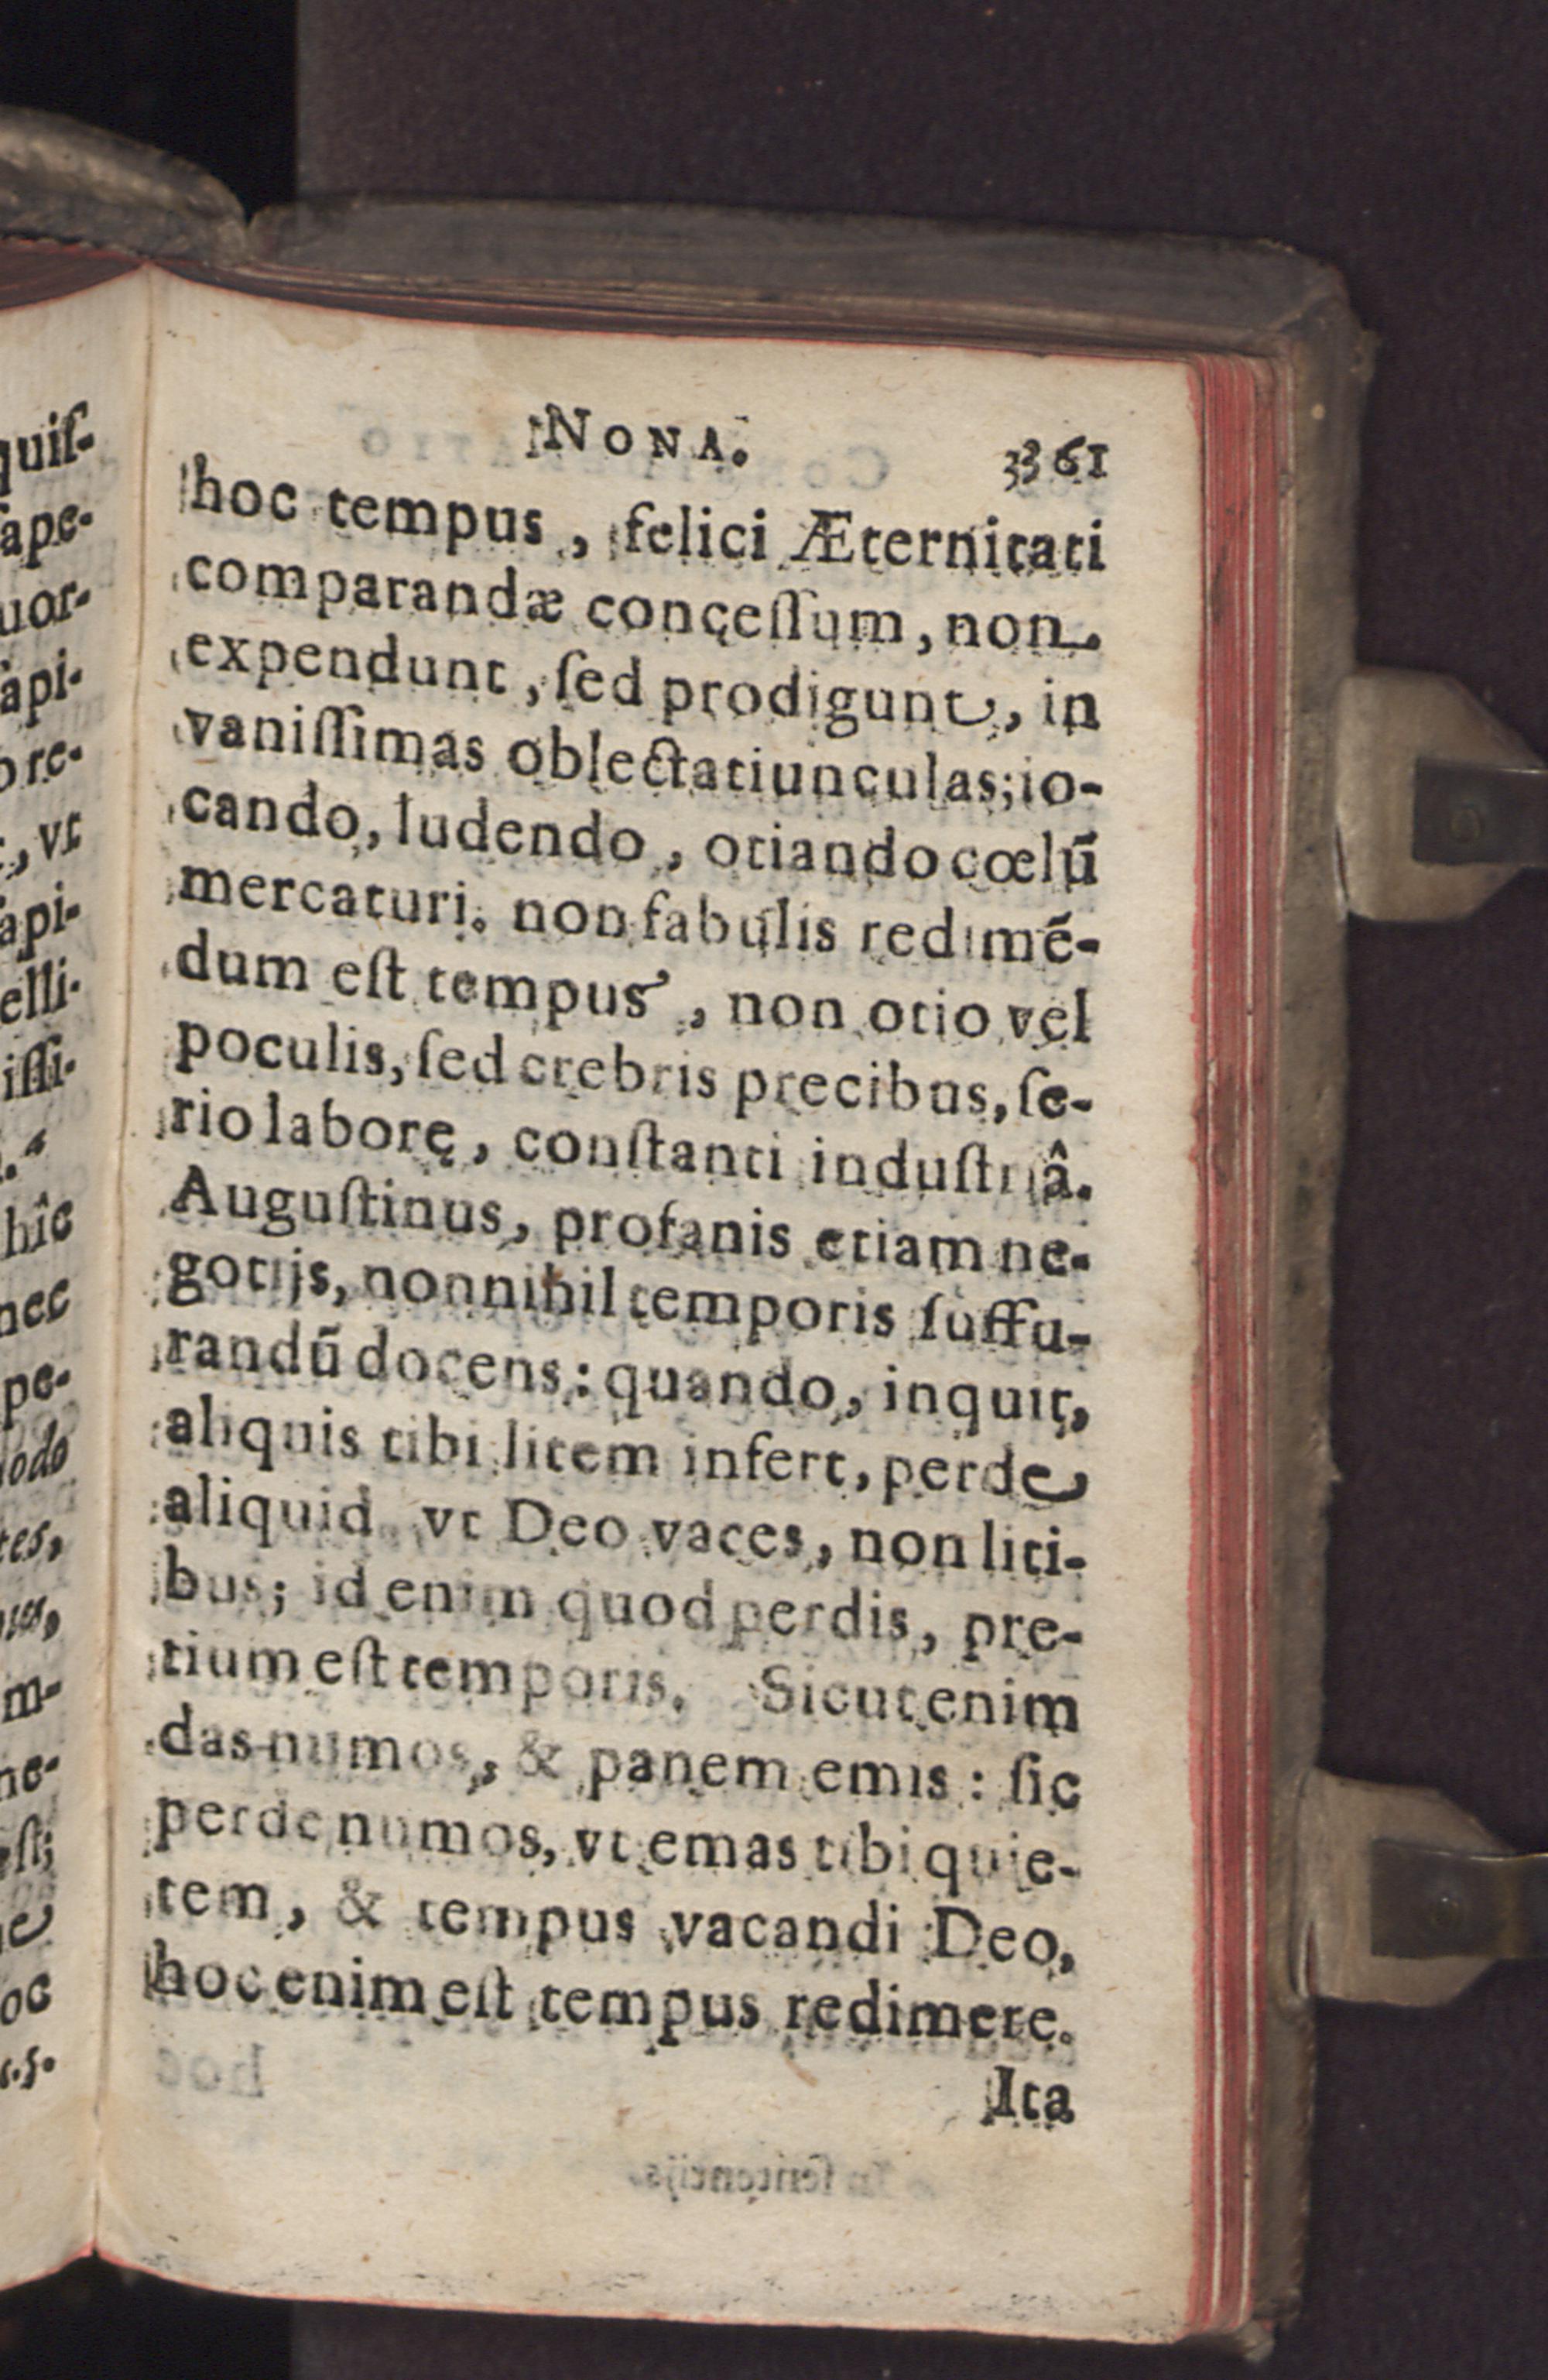 NONA. 361
hoc tempus, felici Æternitati
comparandæ conceſſum, non
expendunt, ſed prodigunt, in
vaniſſimas oblectatiunculas; io-
cando, ludendo, otiando cœlū
mercaturi. non fabulis redimē-
dum eſt tempus, non otio vel
poculis, ſed crebris precibus, ſe-
rio labore, conſtanti induſtriâ.
Auguſtinus, profanis etiam ne-
gotijs, nonnihil temporis ſuffu-
randū docens: quando, inquit,
aliquis tibi litem infert, perde
aliquid vt Deo vaces, non liti-
bus; id enim quod perdis, pre-
tium eſt temporis. Sicut enim
das numos, & panem emis: ſic
perde numos, vt emas tibi quie-
tem, & tempus vacandi Deo,
hoc enim eſt tempus redimere.
Ita
quiſ-
ape-
uor-
api-
re-
, vt
api-
elli-
iſſi-
hîc
nec
pe-
odo
tes,
m-
ne-
eſt;
oc